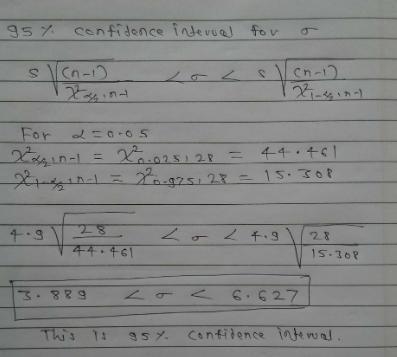 95% confidence interval for σ
s √((n-1)/χ²α/2, n-1) < σ < s √((n-1)/χ²1-α/2, n-1)
For α = 0.05
χ²α/2, n-1 = χ²0.025, 28 = 44.461
χ²1-α/2, n-1 = χ²0.975, 28 = 15.308
4.9 √(28/44.461) < σ < 4.9 √(28/15.308)
3.889 < σ < 6.627
This is 95% confidence interval.